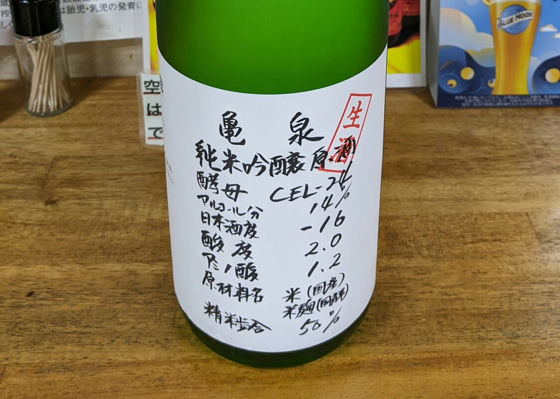 極
は胎児・乳児の発育に
BLUE MOON
空
は
で
亀 泉
生酒
純米吟醸原酒
酵母 CEL-24
アルコール分 14%
日本酒度 -16
酸度 2.0
アミノ酸 1.2
原材料名 米(国産)
米麹(国産米)
精米歩合 50%